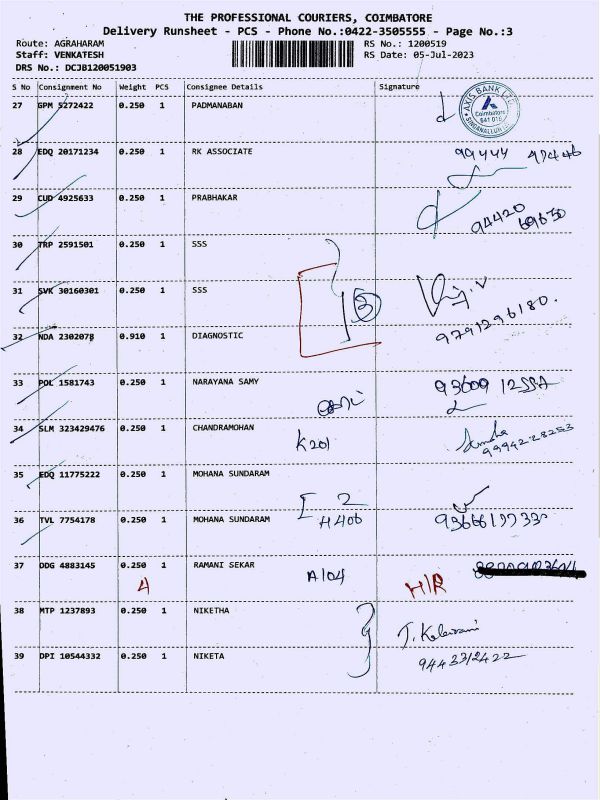 THE PROFESSIONAL COURIERS, COIMBATORE
Delivery Runsheet - PCS - Phone No.:0422-3505555 - Page No.:3
Route: AGRAHARAM RS No.: 1200519
Staff: VENKATESH RS Date: 05-Jul-2023
DRS No.: DCJB120051903
S No Consignment No Weight PCS Consignee Details Signature
27 GPM 5272422 0.250 1 PADMANABAN
AXIS BANK LTD.
Coimbatore
641 015
SINGANALLUR
28 EDQ 20171234 0.250 1 RK ASSOCIATE 99444 47446
29 CUD 4925633 0.250 1 PRABHAKAR 94420
69630
30 TRP 2591501 0.250 1 SSS
31 SVK 30160301 0.250 1 SSS 3
9791296180.
32 NDA 2302078 0.910 1 DIAGNOSTIC
33 POL 1581743 0.250 1 NARAYANA SAMY
34 SLM 323429476 0.250 1 CHANDRAMOHAN K201
9994228253
35 EDQ 11775222 0.250 1 MOHANA SUNDARAM
2
36 TVL 7754178 0.250 1 MOHANA SUNDARAM H406
37 DDG 4883145 0.250 1 RAMANI SEKAR A104 H/R
4
38 MTP 1237893 0.250 1 NIKETHA
39 DPI 10544332 0.250 1 NIKETA 9443312422